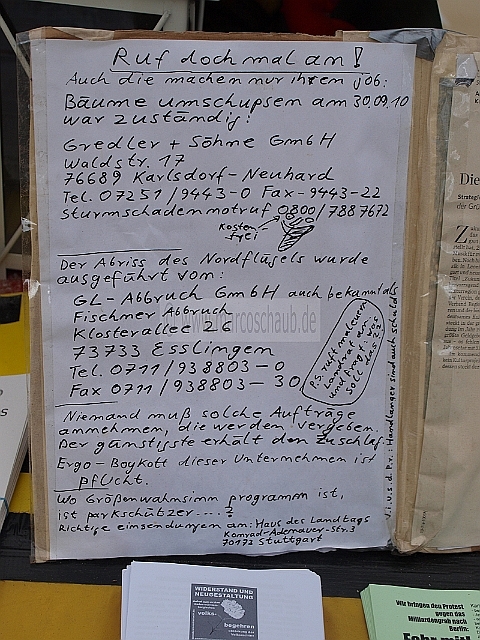 Ruf doch mal an!
Auch die machen nur ihren Job:
Bäume umschupsen am 30.09.10
war zuständig:
Gredler + Söhne GmbH
Waldstr. 17
76689 Karlsdorf-Neuhard
Tel. 07251/9443-0 Fax-9443-22
Sturmschadennotruf 0800/7887672
Kosten-
frei
Der Abriss des Nordflügels wurde
ausgeführt von:
GL-Abbruch GmbH auch bekannt als
Fischer Abbruch
Klosterallee 2a
73733 Esslingen
Tel. 0711/938803-0
Fax 0711/938803-30
P.S. ruft mal euern
Landrat an
und fragt ihn, was
soll das ??
Niemand muß solche Aufträge
annehmen, die werden vergeben.
Der günstigste erhält den Zuschlag.
Ergo-Boykott dieser Unternehmen ist
Pflicht.
Wo Größenwahnsinn programm ist,
ist parkschützer....?
Richtige einsendungen an: Haus des Landtags
Konrad-Adenauer-Str. 3
70173 Stuttgart
V.i.S.d.P.r.: Handlanger sind auch schuld
marcoschaub.de
Die
Strategi
der Grü
WIDERSTAND UND
NEUGESTALTUNG
volks-
begehren
Wir bringen den Protest
gegen das
Milliardengrab nach
Berlin: